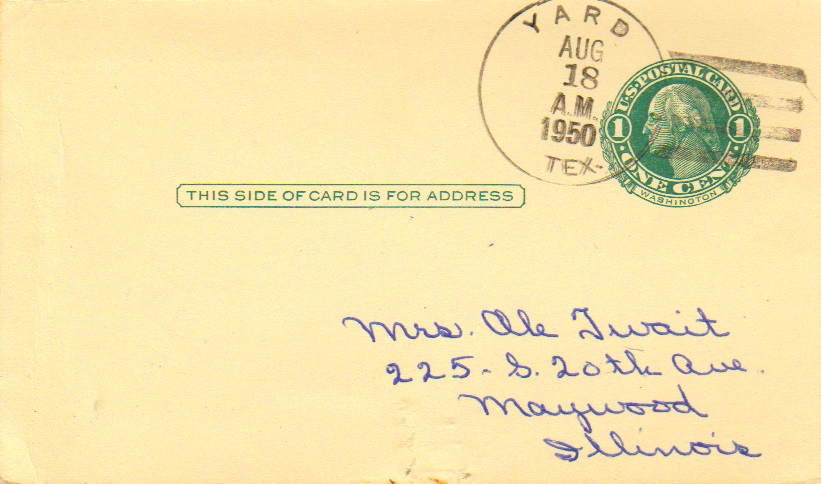 YARD
AUG
18
A.M.
1950
TEX-
U.S. POSTAL CARD
1 1
·ONE CENT·
WASHINGTON
THIS SIDE OF CARD IS FOR ADDRESS
Mrs. Ole Twait
225- S. 20th Ave.
Maywood
Illinois